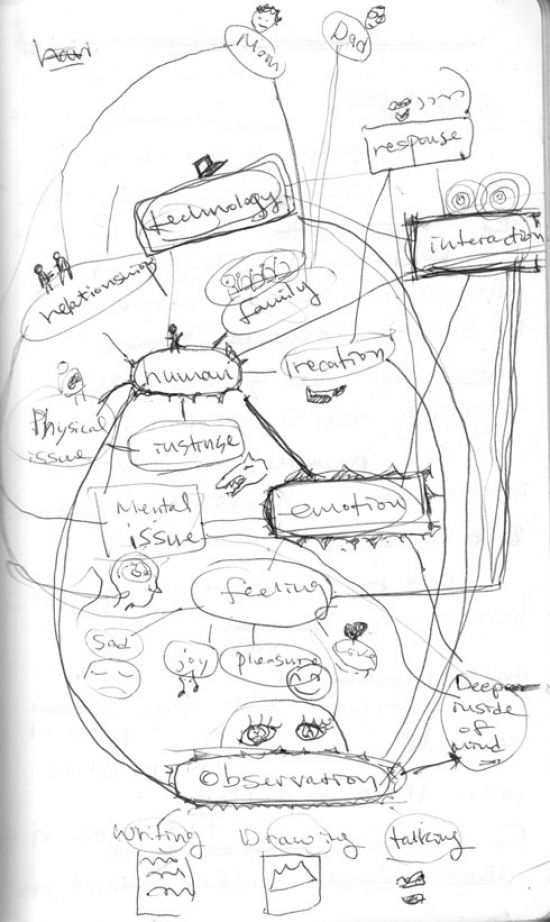 Mom
Dad
response
technology
interaction
relationship
family
human
recation
Physical
issue
instinge
Mental
issue
emotion
feeling
Sad
joy
pleasure
Love
Deep
inside
of
mind
observation
writing
Drawing
talking